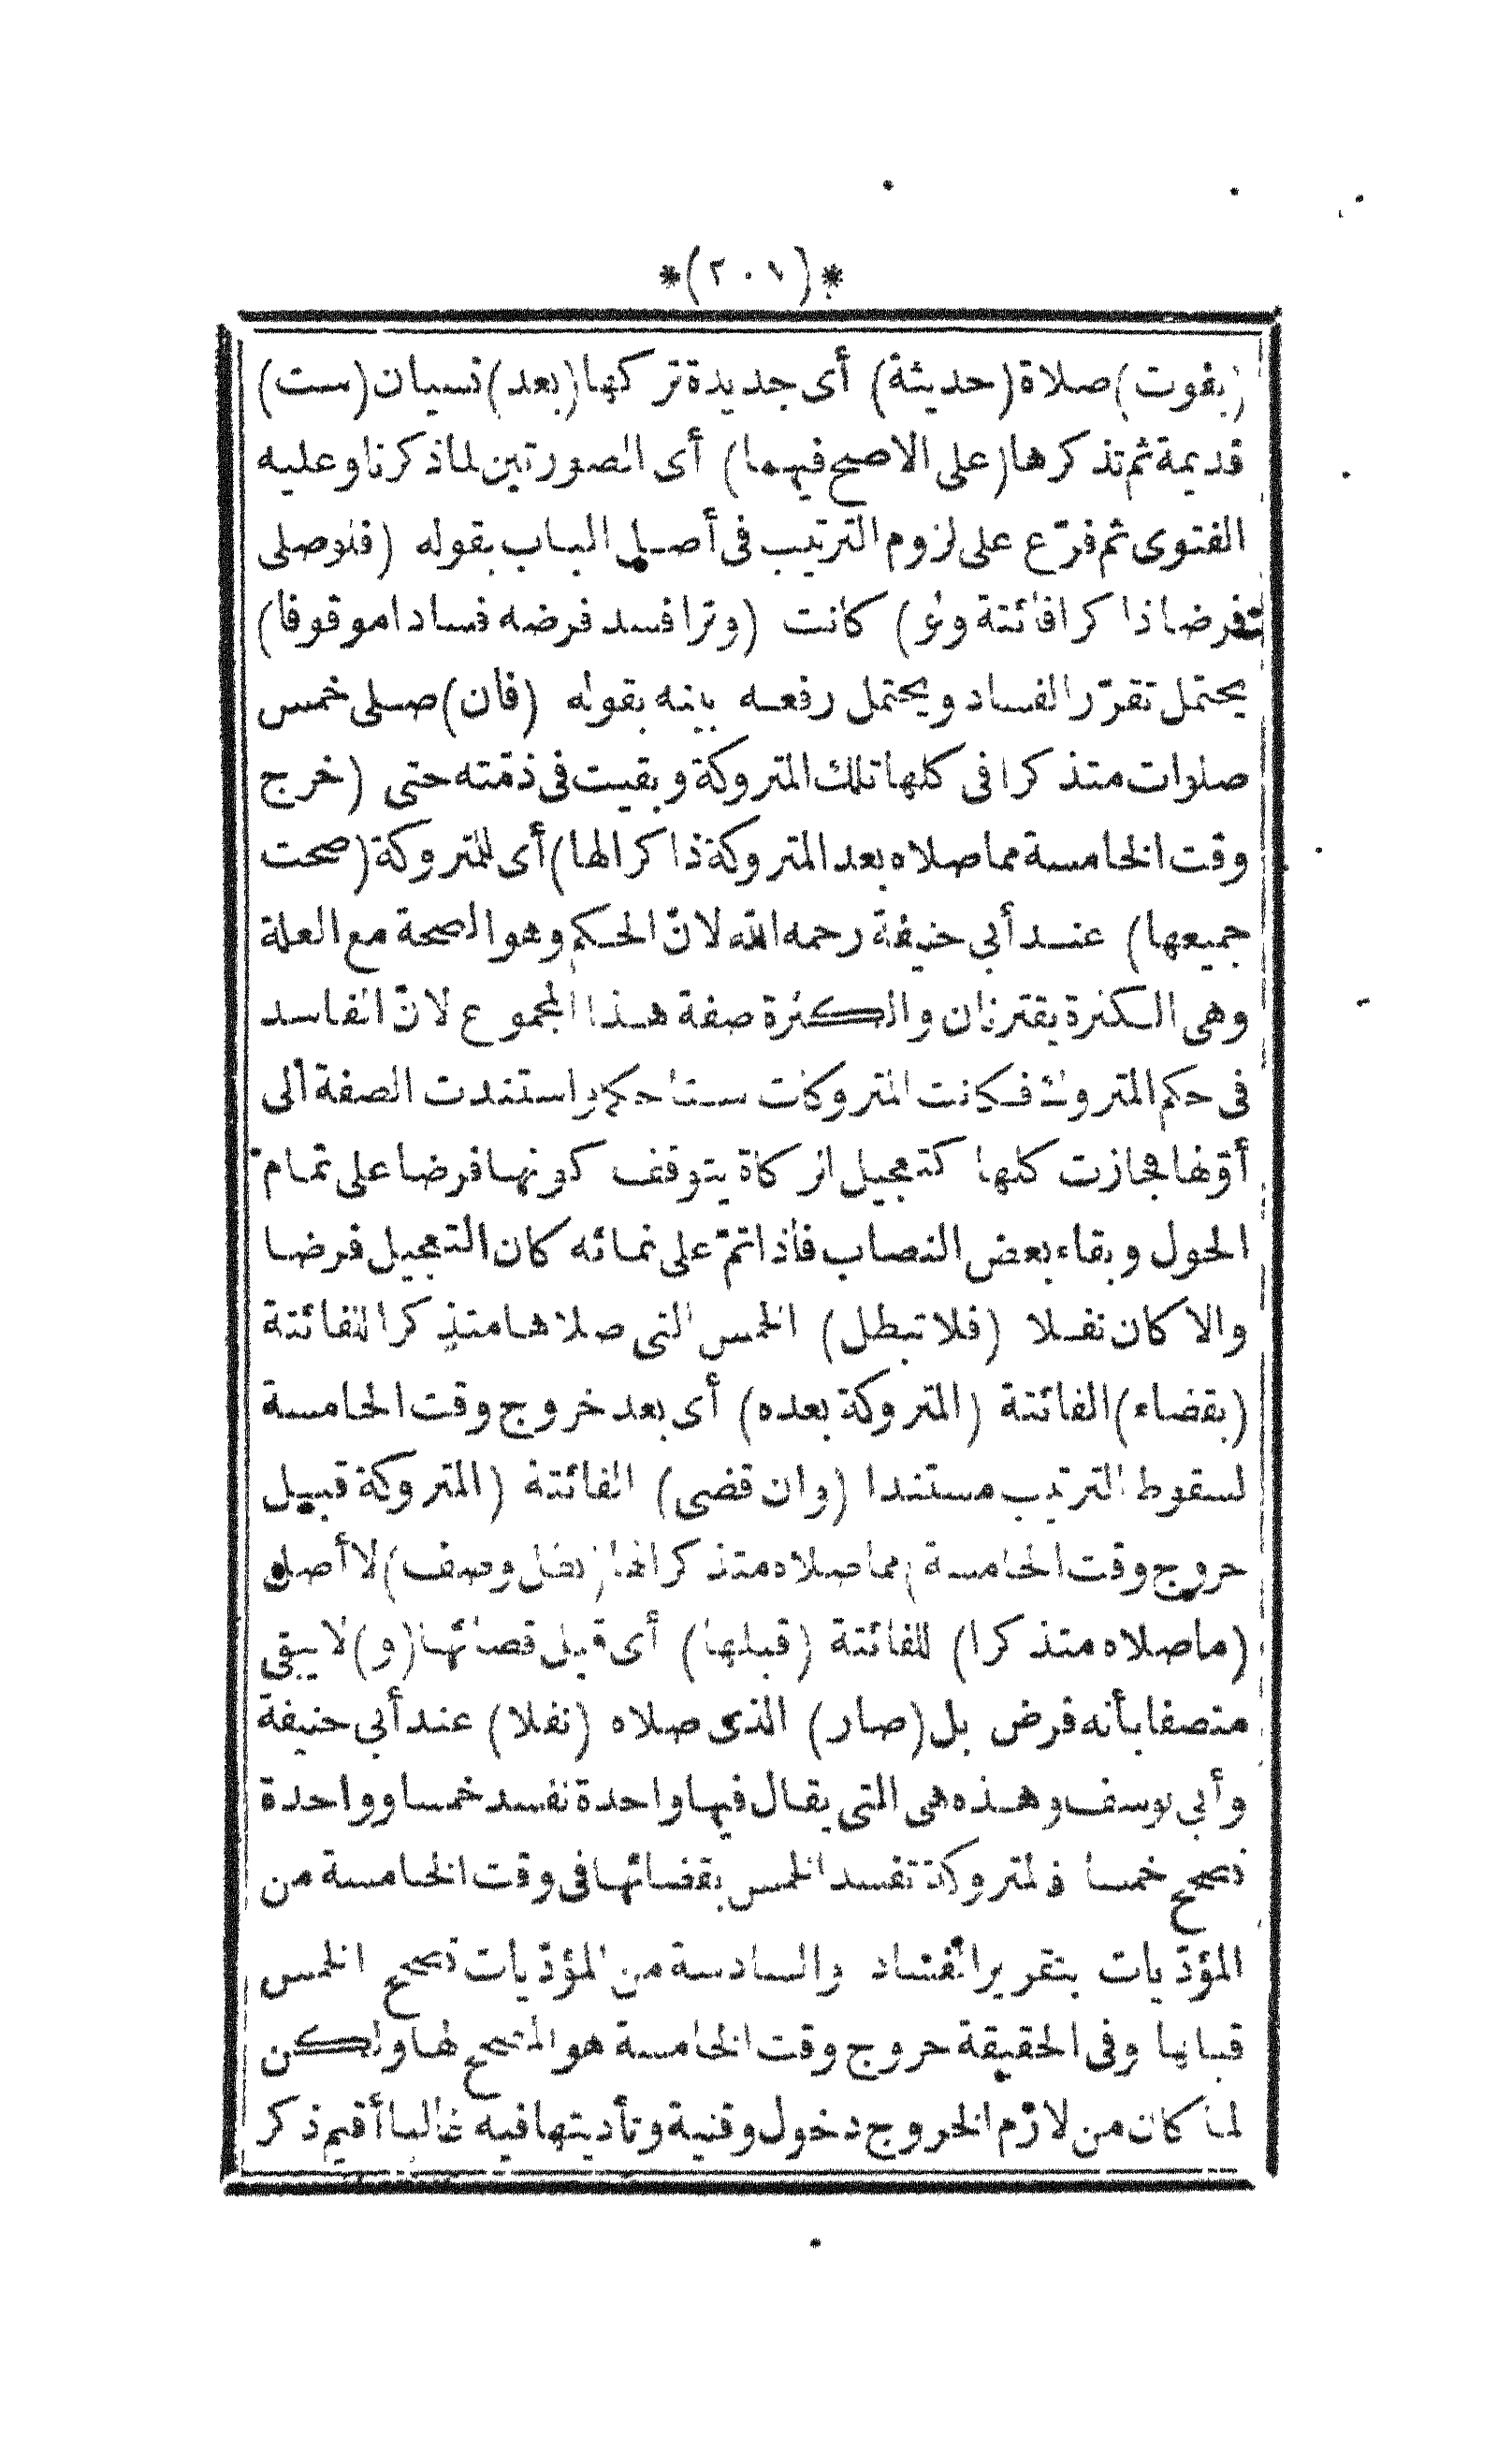 *(٢٠١)*
(بفوت) صلاة (حديثة) أى جديدة تركها (بعد) نسيان (ست)
قديمة ثم تذكرها (على الاصح فيهما) أى الصورتين لما ذكرنا وعليه
الفتوى ثم فرّع على لزوم الترتيب فى أصل الباب بقوله (فلو صلى
فرضا ذاكرا فائتة ولو) كانت (وترا فسد فرضه فسادا موقوفا)
يحتمل تقرّر الفساد ويحتمل رفعه بينه بقوله (فان) صلى خمس
صلوات متذكرا فى كلها تلك المتروكة وبقيت فى ذمته حتى (خرج
وقت الخامسة مما صلاه بعد المتروكة ذاكرا لها) أى للمتروكة (صحت
جميعها) عند أبى حنيفة رحمه الله لانّ الحكم وهو الصحة مع العلة
وهى الكثرة يقترنان والكثرة صفة هذا المجموع لانّ الفاسد
فى حكم المتروك فكانت المتروكات ستا حكما واستندت الصفة الى
أوّلها فجازت كلها كتعجيل الزكاة يتوقف كونها فرضا على تمام
الحول وبقاء بعض النصاب فاذا تمّ على نمائه كان التعجيل فرضا
والا كان نفلا (فلا تبطل) الخمس التى صلاها متذكرا للفائتة
(بقضاء) الفائتة (المتروكة بعده) أى بعد خروج وقت الخامسة
لسقوط الترتيب مستندا (وان قضى) الفائتة (المتروكة قبيل
خروج وقت الخامسة) مما صلاه متذكرا لها (بطل وصف) لا أصل
(ما صلاه متذكرا) للفائتة (قبلها) أى قبل قضائها (و) لا يبقى
متصفا بأنه فرض بل (صار) الذى صلاه (نفلا) عند أبى حنيفة
وأبى يوسف وهذه هى التى يقال فيها واحدة تفسد خمسا وواحدة
تصحح خمسا فالمتروكة تفسد الخمس بقضائها فى وقت الخامسة من
المؤدّيات بتقرير الفساد والسادسة من المؤدّيات تصحح الخمس
قبلها وفى الحقيقة خروج وقت الخامسة هو المصحح لها ولكن
لما كان من لازم الخروج دخول وقتية وتأديتها فيه غالبا أقيم ذكر